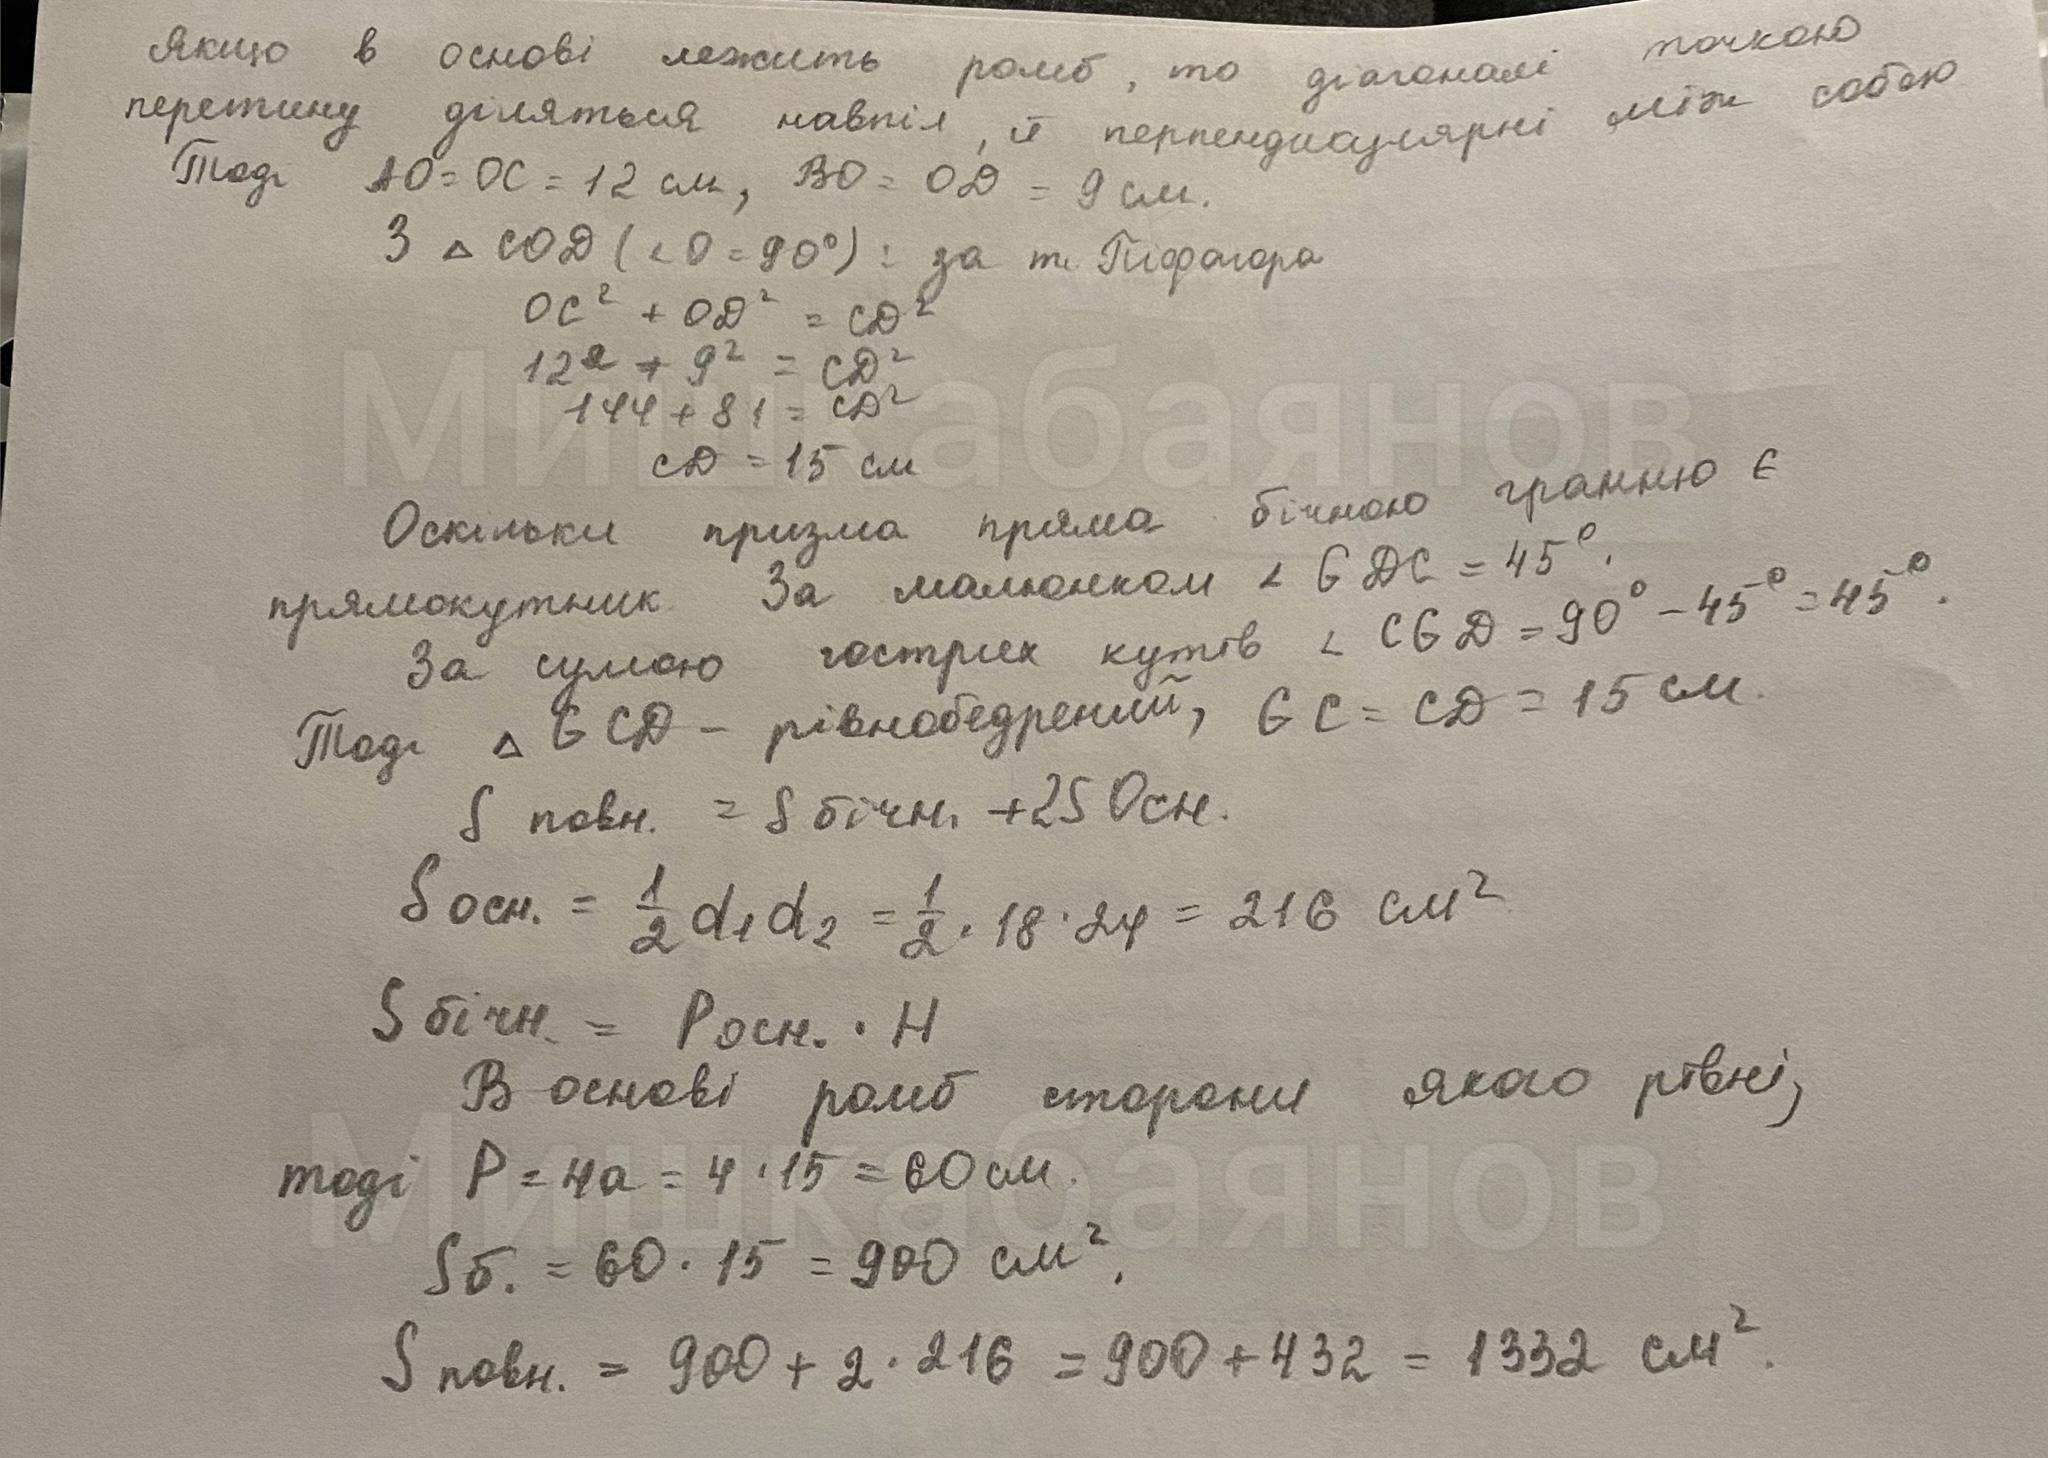 Якщо в основі лежить ромб, то діагоналі точкою
перетину діляться навпіл, й перпендикулярні між собою
Тоді AO = OC = 12 см, BO = OD = 9 см.
З △ COD (∠O = 90°): за т. Піфагора
OC² + OD² = CD²
12² + 9² = CD²
144 + 81 = CD²
CD = 15 см
Оскільки призма пряма бічною гранню є
прямокутник. За малюнком ∠GDC = 45°.
За сумою гострих кутів ∠CGD = 90° - 45° = 45°.
Тоді △ GCD - рівнобедрений, GC = CD = 15 см.
S повн. = S бічн. + 2S Осн.
S осн. = 1/2 d₁d₂ = 1/2 · 18 · 24 = 216 см²
S бічн. = P осн. · H
В основі ромб сторони якого рівні,
тоді P = 4a = 4 · 15 = 60 см.
Sб. = 60 · 15 = 900 см².
S повн. = 900 + 2 · 216 = 900 + 432 = 1332 см².
Мишкабаянов
Мишкабаянов